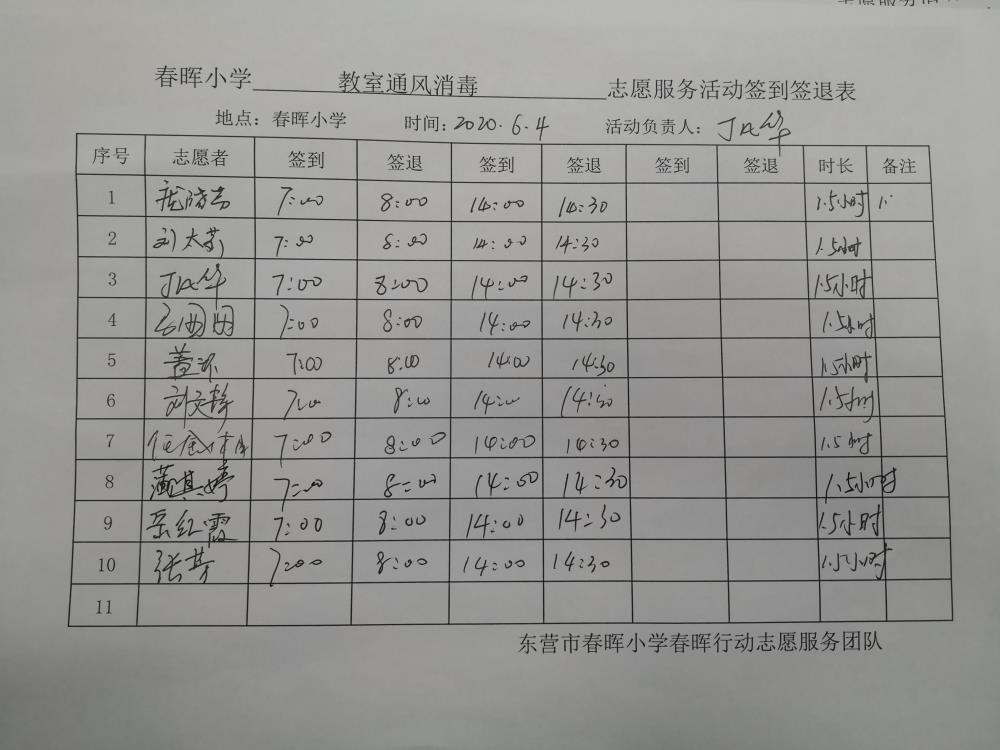 春晖小学 教室通风消毒 志愿服务活动签到签退表
地点：春晖小学 时间：2020.6.4 活动负责人：
序号 志愿者 签到 签退 签到 签退 签到 签退 时长 备注
1 7:00 8:00 14:00 14:30 1.5小时
2 7:00 8:00 14:00 14:30 1.5小时
3 7:00 8:00 14:00 14:30 1.5小时
4 7:00 8:00 14:00 14:30 1.5小时
5 7:00 8:00 14:00 14:30 1.5小时
6 刘文静 7:00 8:00 14:00 14:30 1.5小时
7 7:00 8:00 14:00 14:30 1.5小时
8 7:00 8:00 14:00 14:30 1.5小时
9 岳红霞 7:00 8:00 14:00 14:30 1.5小时
10 张芳 7:00 8:00 14:00 14:30 1.5小时
11
东营市春晖小学春晖行动志愿服务团队